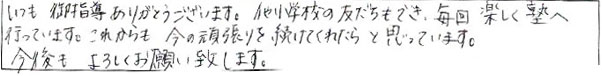 いつも御指導ありがとうございます。他小学校の友だちもでき、毎回楽しく塾へ
行っています。これからも今の頑張りを続けてくれたらと思っています。
今後もよろしくお願い致します。